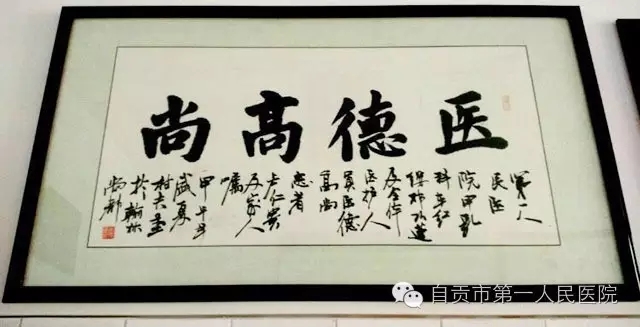 医德高尚
第一人
民医
院甲乳
科
及全体
医护人
员医德
高尚
患者
卢仁
及家人
嘱
甲午年
盛夏
村夫
於翰林
自贡市第一人民医院